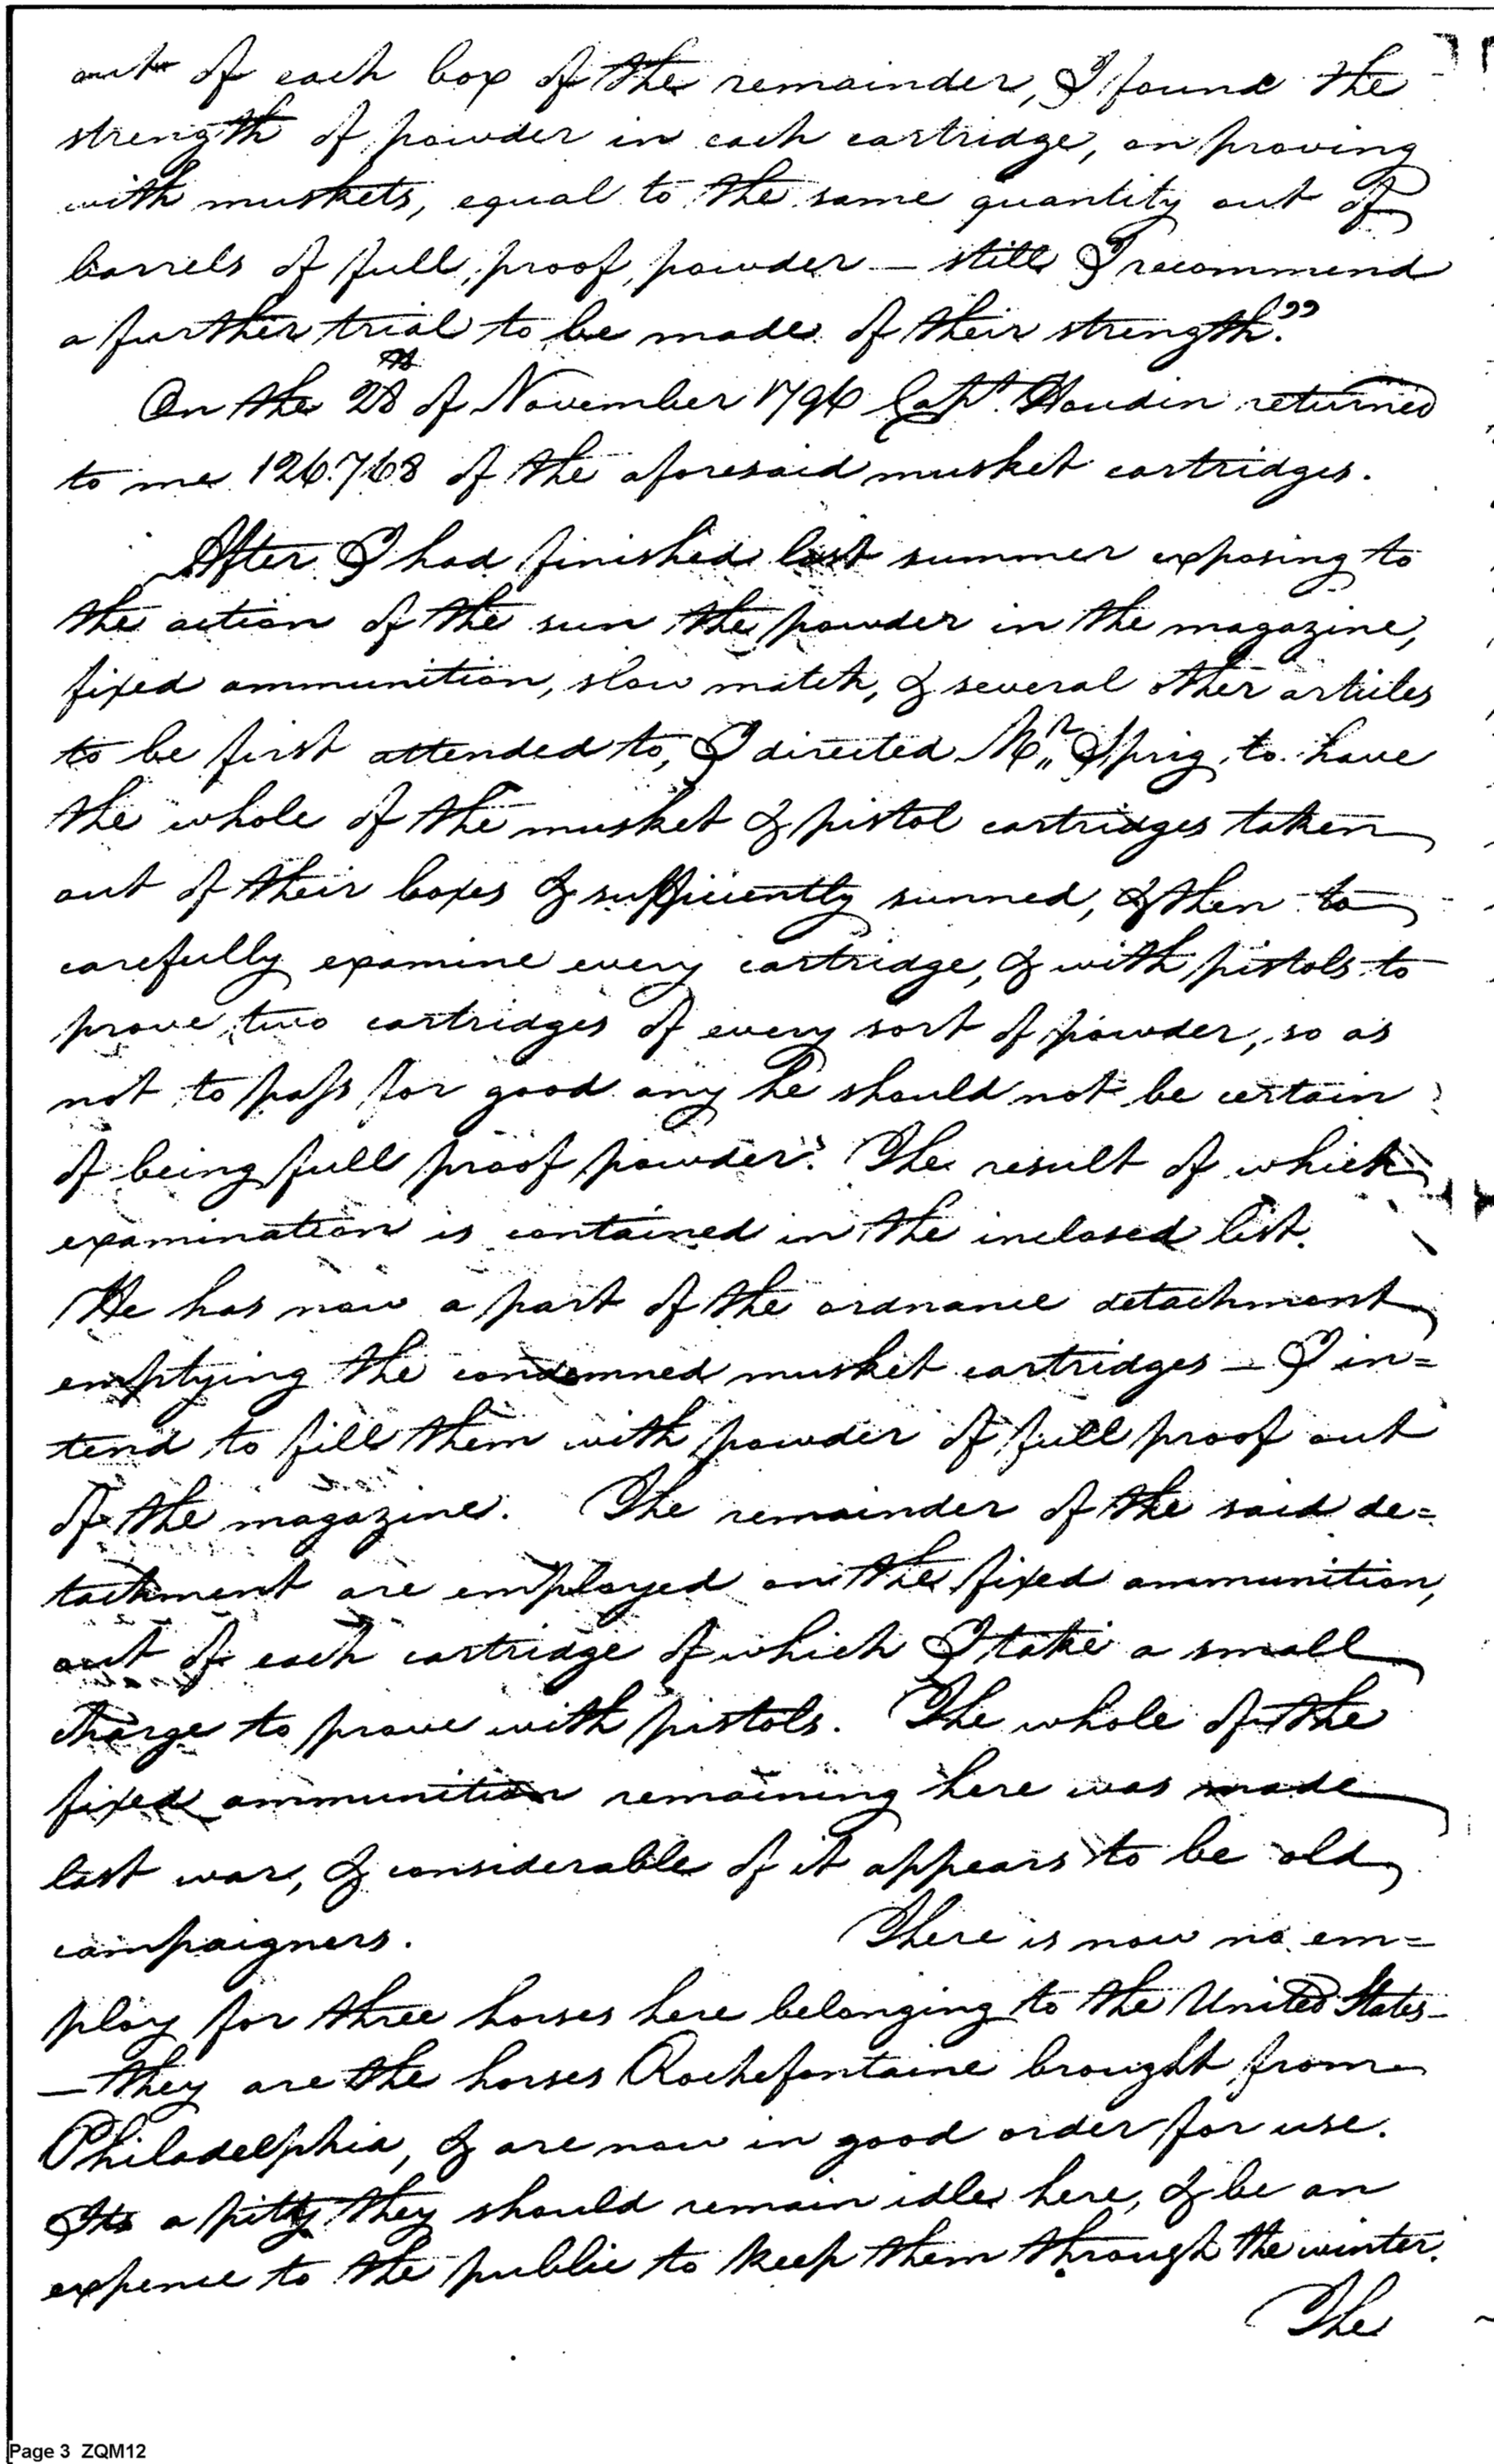 out of each box of the remainder, I found the
strength of powder in each cartridge, on proving
with muskets, equal to the same quantity out of
barrels of full proof powder — still I recommend
a further trial to be made of their strength."
On the 28th of November 1796 Capt. Houdin returned
to me 126.768 of the aforesaid musket cartridges.
After I had finished last summer exposing to
the action of the sun the powder in the magazine,
fixed ammunition, slow match, & several other articles
to be first attended to, I directed Mr. Sprig to have
the whole of the musket & pistol cartridges taken
out of their boxes & sufficiently sunned, & then to
carefully examine every cartridge, & with pistols to
prove two cartridges of every sort of powder, so as
not to pass for good any he should not be certain
of being full proof powder. The result of which
examination is contained in the inclosed list.
He has now a part of the ordnance detachment
emptying the condemned musket cartridges — I in=
tend to fill them with powder of full proof out
of the magazine. The remainder of the said de=
tachment are employed on the fixed ammunition,
out of each cartridge of which I take a small
charge to prove with pistols. The whole of the
fixed ammunition remaining here was made
last war, & considerable of it appears to be old
campaigners. There is now no em=
ploy for three horses here belonging to the United States —
— they are the horses Rochefontaine brought from
Philadelphia, & are now in good order for use.
Its a pitty they should remain idle here, & be an
expence to the public to keep them through the winter.
The
Page 3 ZQM12